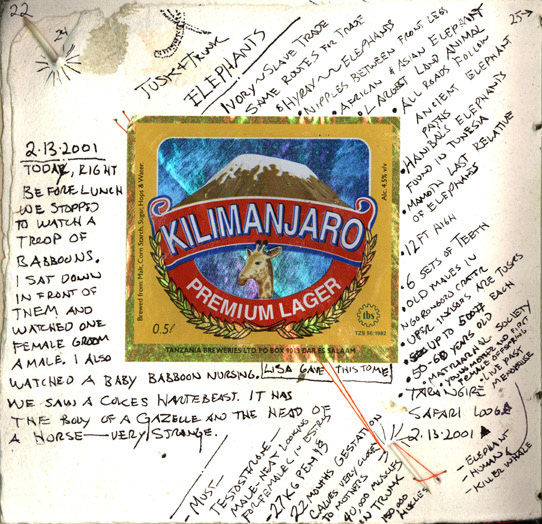 22
24
25→
TUSK & TRUNK
ELEPHANTS
IVORY ~ SLAVE TRADE
SAME ROUTES FOR TRADE
• HYRAX ~ ELEPHANTS
• NIPPLES BETWEEN FRONT LEGS
• AFRICAN & ASIAN ELEPHANT
• LARGEST LAND ANIMAL
• ALL ROADS FOLLOW
ANCIENT ELEPHANT
PATHS
• HANIBALS ELEPHANTS
FOUND IN TUNESIA
• MAMOTH LAST RELATIVE
OF ELEPHANTS
• 12 FT HIGH
• 6 SETS OF TEETH
• OLD MALES IN
NGORONGORO CRATR
• UPER INCISORS ARE TUSKS
• UP TO 500# EACH
• 50-60 YEARS OLD
• MATRIARCHAL SOCIETY
FEMALE OFFSPRING
• LIVE PAST
MENOPAUSE
- ELEPHANT
- HUMAN &
- KILLER WHALE
TARANGIRE
SAFARI LODGE
2-13-2001
2.13.2001
TODAY, RIGHT
BEFORE LUNCH
WE STOPPED
TO WATCH A
TROOP OF
BABBOONS.
I SAT DOWN
IN FRONT OF
THEM AND
WATCHED ONE
FEMALE GROOM
A MALE. I ALSO
WATCHED A BABY BABBOON NURSING.
LISA GAVE THIS TO ME
WE SAW A COKES HARTEBEAST. IT HAS
THE BODY OF A GAZELLE AND THE HEAD OF
A HORSE — VERY STRANGE.
Brewed from: Malt, Corn Starch, Sugar, Hops & Water.
Alc. 4.5% v/v
KILIMANJARO
PREMIUM LAGER
0.5l
tbs
TZS 56:1982
TANZANIA BREWERIES LTD PO BOX 9013 DAR ES SALAAM
- MUST -
TESTOSTERONE
MALE-HEAT LOOKING
FOR FEMALE IN ESTRUS
- 27 KG PENIS
- 22 MONTHS GESTATION
CALVES VERY CLOSE
TO MOTHERS
- 40,000 MUSCLES
IN TRUNK
150,000
MUSCLES